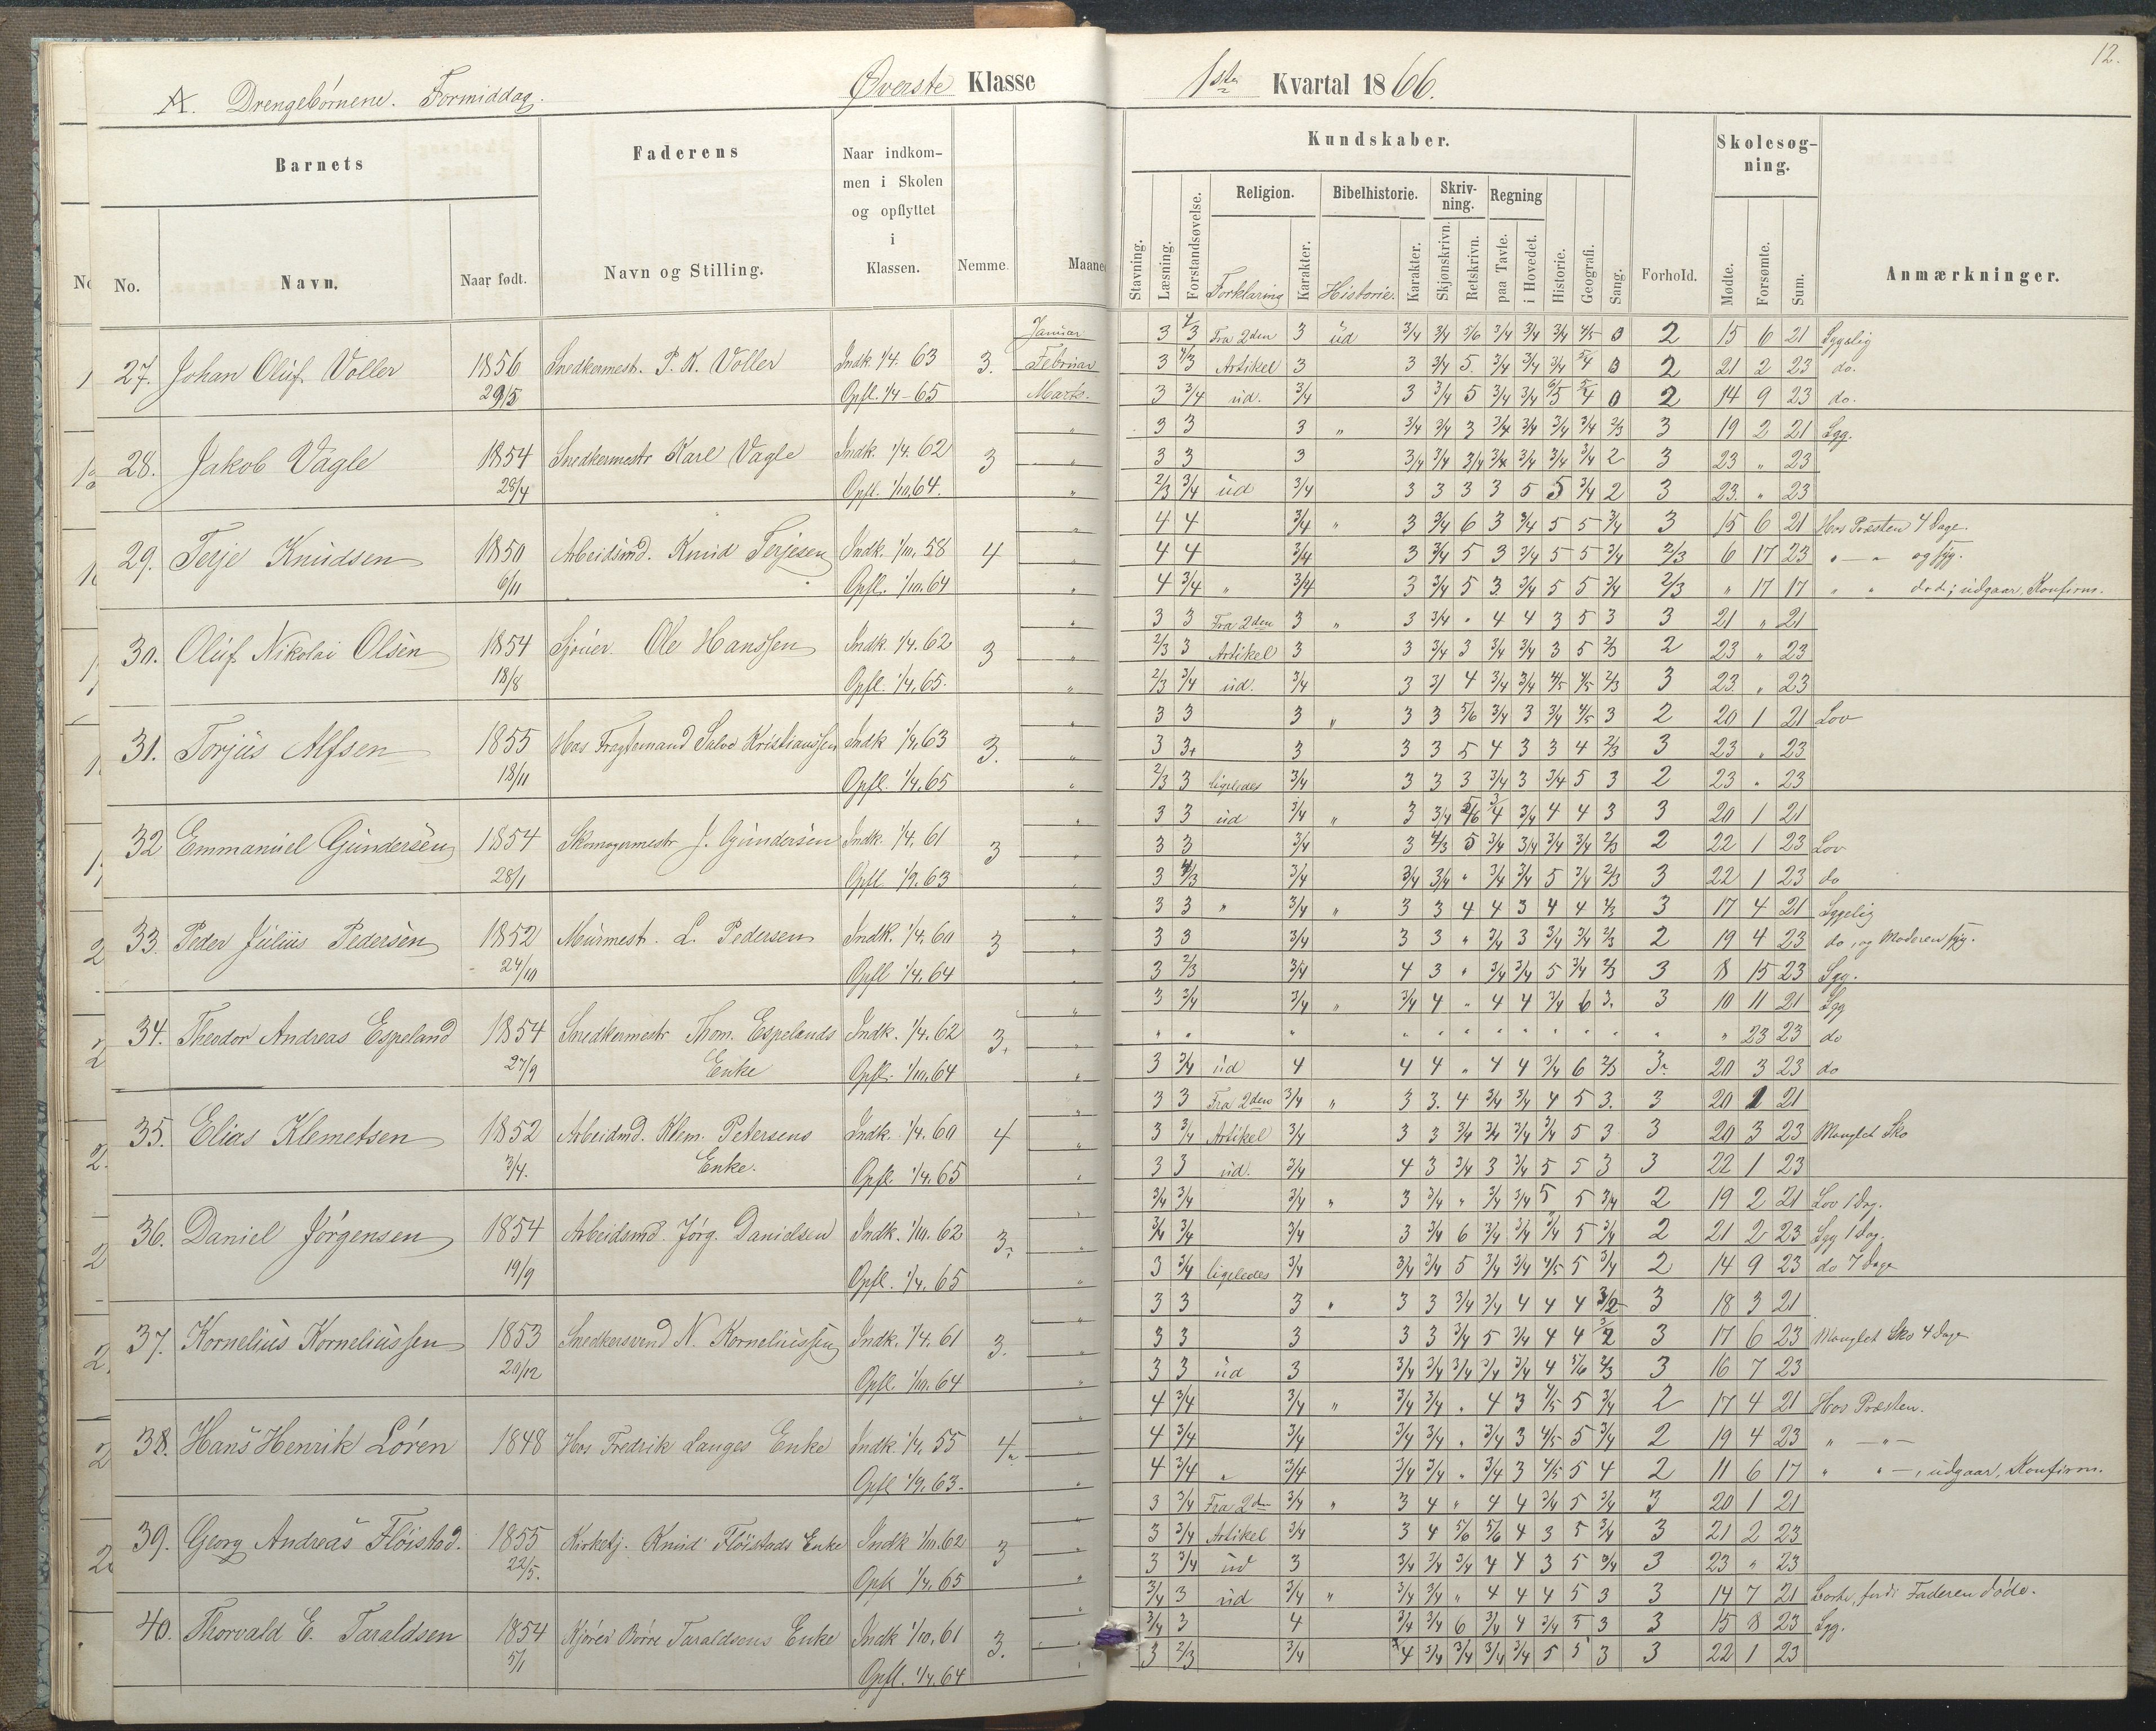 A. Drengebørnene. Formiddag. Øverste Klasse 1ste Kvartal 1866. 12.
Barnets Faderens Naar indkommen i Skolen og opflyttet i Klassen. Nemme. Maaned
No. Navn. Naar født. Navn og Stilling.
Kundskaber. Skolesøgning.
Religion. Bibelhistorie. Skrivning. Regning
Stavning. Læsning. Forstandsøvelse. Forklaring Karakter. Historie. Karakter. Skjønskrivn. Retskrivn. paa Tavle. i Hovedet. Historie. Geografi. Sang. Forhold. Mødte. Forsømte. Sum. Anmærkninger.
27. Johan Oluf Voller 1856 29/5 Snedkermest. P. K. Voller Indk. 1/4. 63 Opfl. 1/4-65 3.
Januar 3 Fra 2den 3 ud 3/4 3/4 5/6 3/4 3/4 3/4 4/5 0 2 15 6 21 Sygelig
Februar 3 4/3 Artikel 3 3 3/4 5. 3/4 3/4 3/4 0 2 21 2 23 do.
Marts. 3 3/4 ud. 3/4 3 3/4 5 3/4 3/4 0 2 14 9 23 do.
28. Jakob Vagle 1854 28/4 Snedkermestr Karl Vagle Indk. 1/4. 62 Opfl. 1/10.64. 3
" 3 3 3 " 3/4 3/4 3 3/4 3/4 3/4 3/4 2/3 3 19 2 21 Syg.
" 3 3 3 3/4 3/4 3/4 3/4 3/4 3/4 3/4 2 3 23 " 23
" 2/3 3/4 ud 3/4 3 3 3 3 5 5 3/4 2 3 23. " 23
29. Terje Knudsen 1850 6/11 Arbeidsmd. Knud Terjesen Indk. 1/10. 58 Opfl. 1/10.64 4
" 4 4 3/4 " 3 3/4 6 3 3/4 5 5 3/4 3 15 6 21 Hos Præsten 4 Dage.
" 4 4 3/4 3 3/4 5 3 3/4 5 5 3/4 2/3 6 17 23 " — " og syg.
" 4 3/4 " 3/4 3 3/4 5 3. 3/4 5 5 3/4 2/3 " 17 17 " " do do; udgaar, Konfirm.
30. Oluf Nikolai Olsen 1854 18/8 Sjouer Ole Hanssen Indk. 1/4. 62 Opfl. 1/4. 65. 3
" 3 3 Fra 2den 3 " 3 3/4 " 4 4 3 5 3 3 21 " 21
" 2/3 3 Artikel 3 3 3/4 3 3/4 3/4 3 5 2/3 2 23 " 23
" 2/3 3/4 ud. 3/4 3 3/ 4 3/4 3/4 4/5 4/5 2/3 3 23. " 23
31. Torjus Alfsen 1855 18/11 Hos Fragtemand Salve Kristianssen Indk 1/4. 63 Opfl. 1/4. 65 3.
" 3 3 3 " 3 3 5/6 3/4 3 3/4 4/5 3 2 20 1 21 Lov
" 3 3+ 3 3 3 5 4 3 3 4 2/3 3 23 " 23
" 2/3 3 ligeledes 3/4 3 3 3 3/4 3 3/4 5 3 2 23 " 23
32 Emmanuel Gundersen 1854 28/1 Skomagermestr J. Gundersen Indk. 1/4. 61 Opfl 1/9. 63 3
" 3 3 ud 3/4 " 3 3/4 5/6 3/4 3/4 4 4 3 3 20 1 21
" 3 3 3/4 3 4/3 5 3/4 3/4 3/4 3/4 2/3 2 22 1 23 Lov
" 3 4/3 3/4 3/4 3/4 " 3/4 3/4 5 3/4 2/3 3 22 1 23 do
33. Peder Julius Pedersen 1852 24/10 Murmest. L. Pedersen Indk. 1/4. 60 Opfl 1/4. 64 3
" 3 3 " 3/4 " 3 3 4 4 3 4 4 2/3 3 17 4 21 Sygelig
" 3 3 3/4 3 3 " 3/4 3 3/4 3/4 2/3 2 19 4 23 do, og Moderen syg.
" 3 2/3 3/4 4 3 " 3/4 3/4 5 3/4 2/3 3 8 15 23 Syg.
34. Theodor Andreas Espeland 1854 27/9 Snedkermestr Thom. Espelands Enke Indk. 1/4. 62 Opfl. 1/10. 64 3.
" 3 3/4 3/4 " 3/4 4 " 4 4 3/4 6 3. 3 10 11 21 Syg
" " " " " " " " " " " " " " " 23 23 do
" 3 3/4 ud 4 4 4 " 4 4 3/4 6 2/3 3 20 3 23 do
35. Elias Klemetsen 1852 3/4. Arbeidmd. Klem. Petersens Enke. Indk. 1/4. 60 Opfl. 1/4. 65 4
" 3 3 Fra 2den 3/4 " 3 3. 4 3/4 3/4 4 5 3. 3 20 1 21
" 3 3/4 Artikel 3/4 3 3 3/4 3/4 3/4 3/4 5 3 3 20 3 23 Manglet Sko
" 3 3 ud. 3/4 4 3 3/4 3 3/4 5 5 3 3 22 1 23
36. Daniel Jørgensen 1854 19/9 Arbeidsmd. Jørg. Danielsen Indk. 1/10. 62 Opfl. 1/4. 65 3
" 3/4 3/4 3/4 " 3 3/4 " 3/4 3/4 5 5 3/4 2 19 2 21 Lov 1 Dag.
" 3/4 3/4 3/4 3 3/4 6 3/4 3/4 3/4 5 3/4 2 21 2 23 Syg 1 Dag.
" 3 3/4 ligeledes 3/4 3/4 3/4 5 3/4 3/4 4/5 5 3/4 2 14 9 23 do 7 Dage
37. Kornelius Korneliussen 1853 20/12 Snedkersvend N. Korneliussen Indk. 1/4. 61 Opfl. 1/10. 64 3.
" 3 3 3 " 3 3 3/4 3/4 4 4 4 3/2 3 18 3 21
" 3 3 3 3 3 3/4 5 3/4 4 4 3/2 3 17 6 23 Manglet Sko 4 Dage
" 3 3 ud 3 3/4 3/4 3/4 3/4 3/4 4 5/6 2/3 3 16 7 23
38. Hans Henrik Loren 1848 Hos Fredrik Langes Enke Indk. 1/4. 55 Opfl 1/9. 63. 4
" 4 3/4 3/4 " 3/4 3/4 " 4 3 4/5 5 3/4 2 17 4 21 Hos Præsten.
" 4 3/4 3/4 3/4 3/4 " 3/4 3 4/5 5 3/4 2 19 4 23 " — " —
" 4 3/4 " 3/4 3/4 3/4 " 3/4 3 4/5 5 4 2 11 6 17 " " —, udgaar, Konfirm.
39. Georg Andreas Fløistad. 1855 22/5. Kirketj. Knud Fløistads Enke Indk 1/10. 62 Opfl. 1/4. 65 3
" 3 3/4 Fra 2d 3/4 " 3 4 " 4 4 3/4 5 3/4 3 20 1 21
" 3 3/4 Artikel 3/4 3 4 5/6 5/6 4 3 5 3/4 3 21 2 23
" 3 3/4 ud 3 3/4 3/4 3/4 4 4 3 5 3/4 3 23 " 23
40. Thorvald E. Taraldsen 1854 5/1 Børre Taraldsens Enke Indk 1/10. 61 Opfl. 1/4. 64 3.
" 3/4 3 ud 3/4 " 3/4 3/4 " 4 4 4 5 3 3 14 7 21 Borte, fordi Faderen døde.
" 3/4 3 4 3/4 3/4 6 3/4 4 3/4 5 3 3 15 8 23 Syg.
" 3 2/3 3/4 4 3/4 3/4 3/4 3/4 5 5 3 3 22 1 23